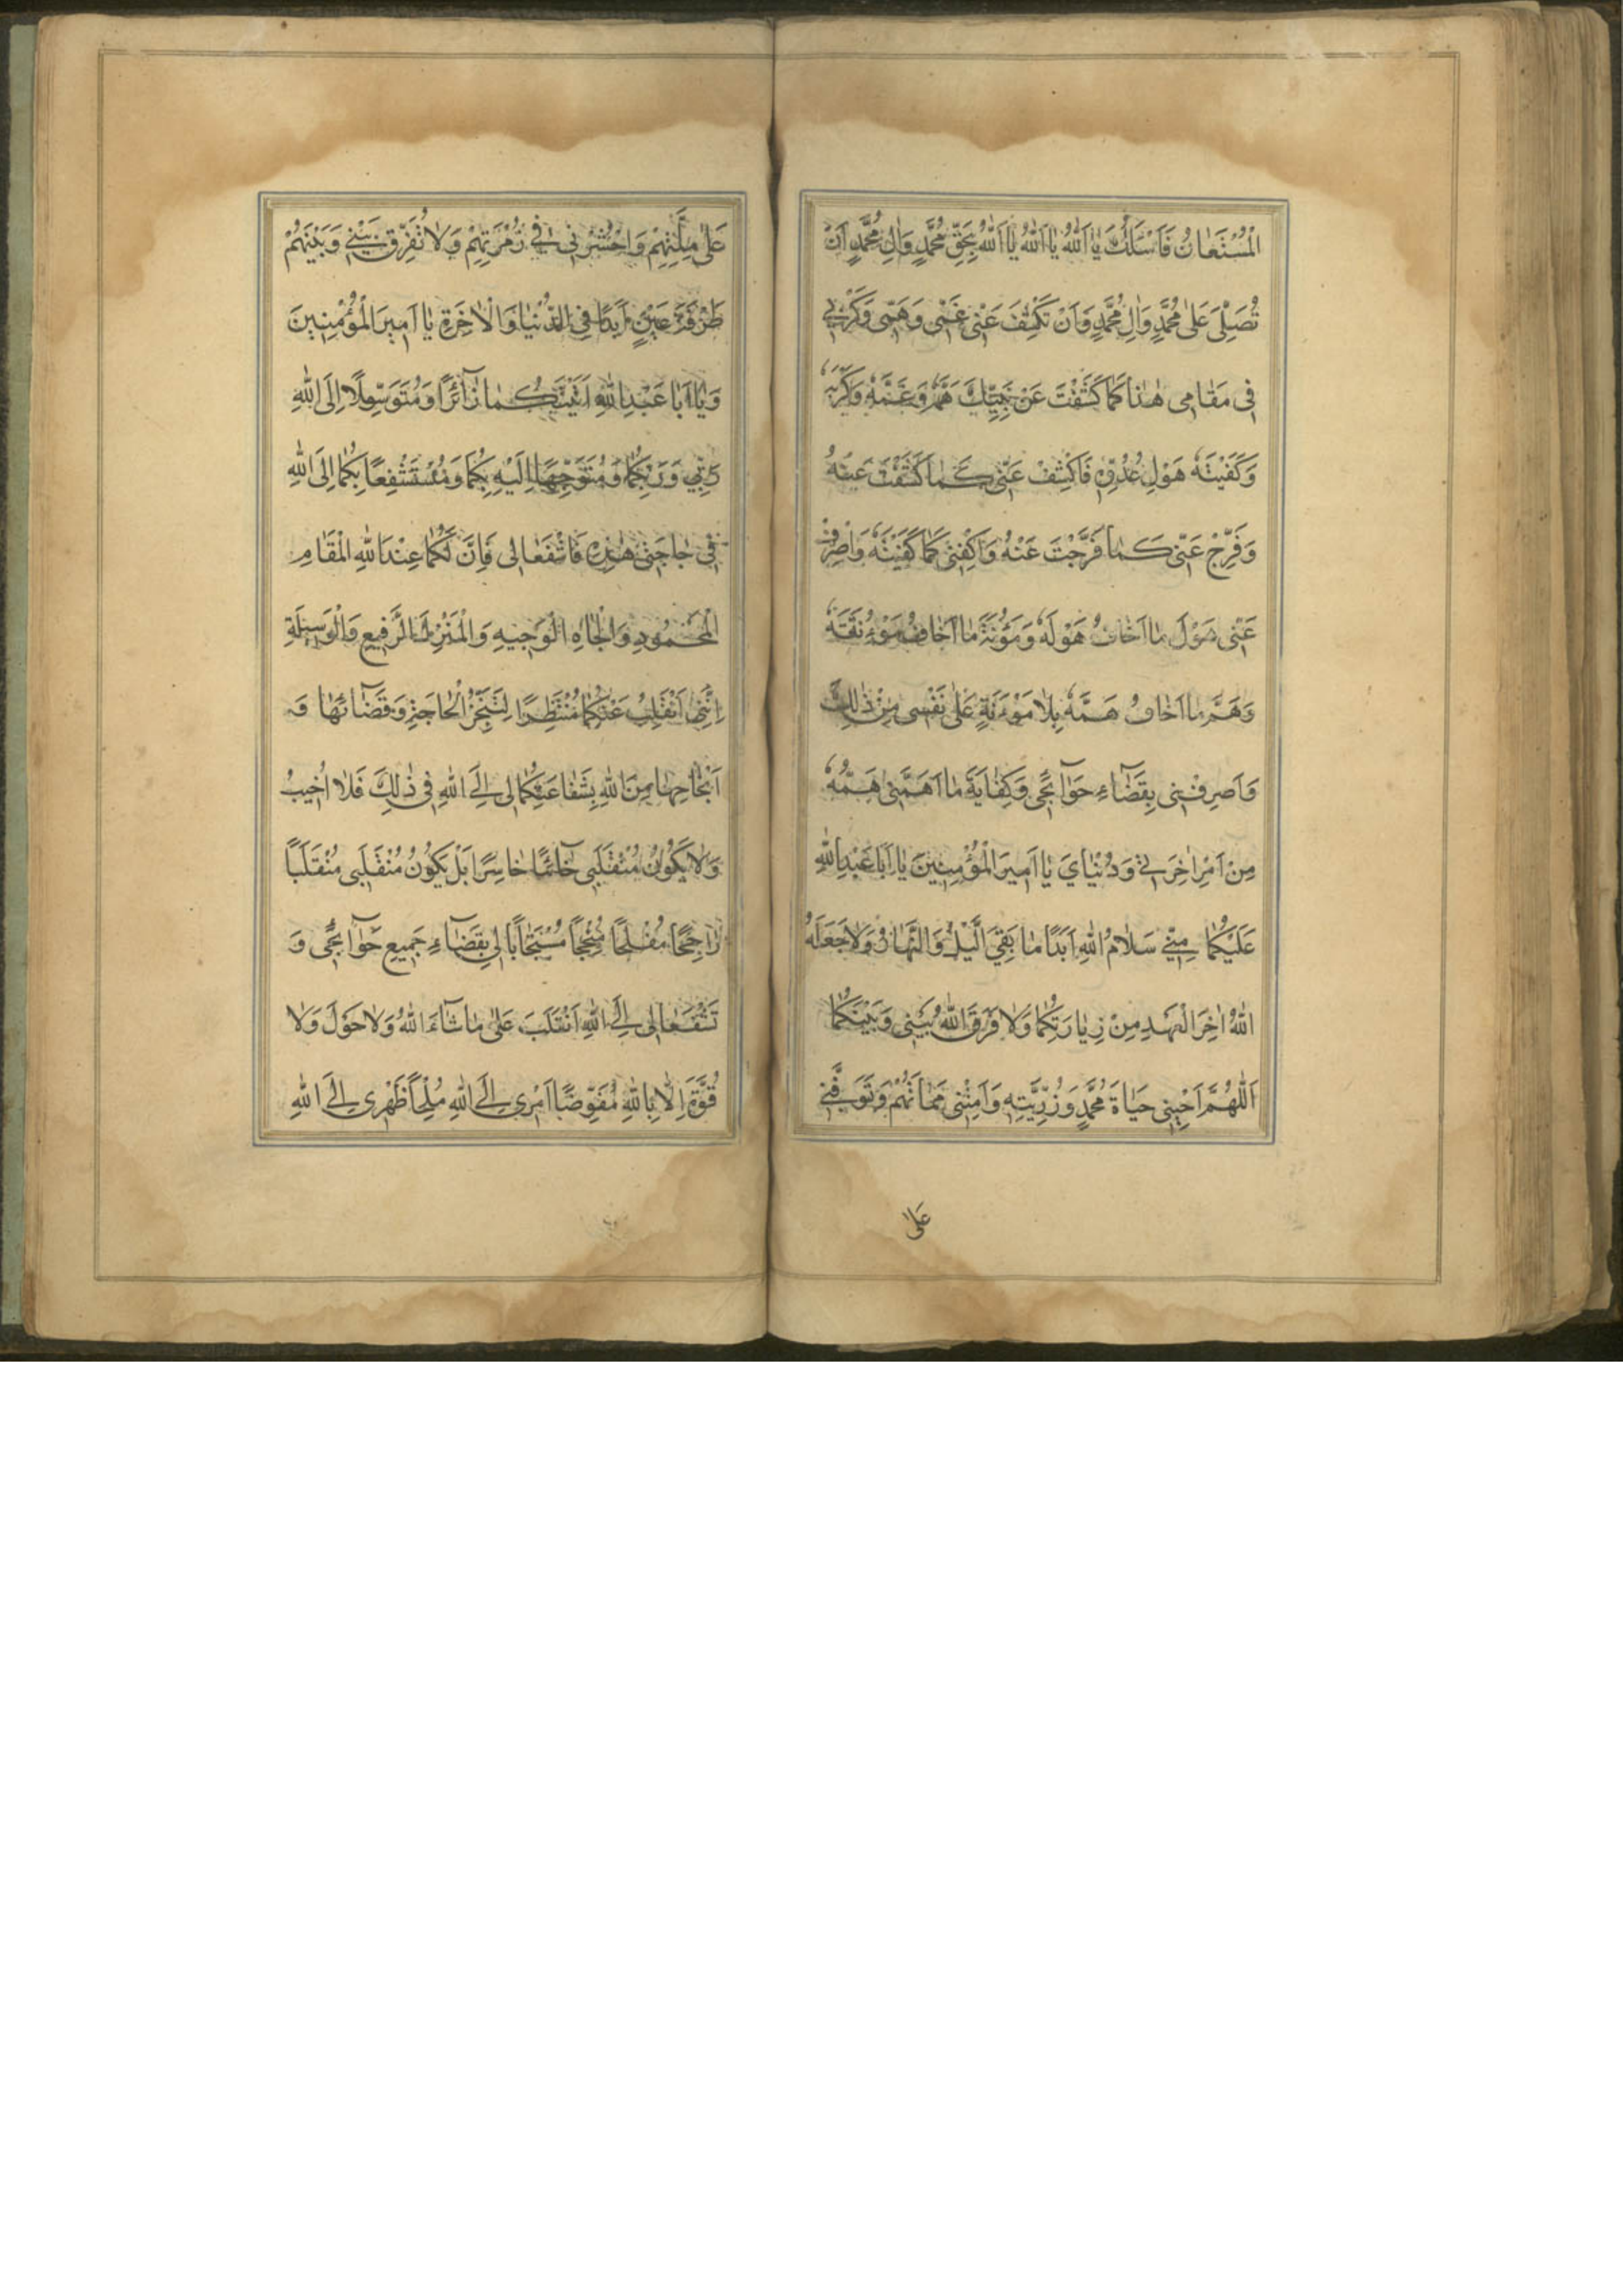 الْمُسْتَعٰانُ فَاَسْئَلُكَ يٰا اَللّٰهُ يٰا اَللّٰهُ يٰا اَللّٰهُ بِحَقِّ مُحَمَّدٍ وَاٰلِ مُحَمَّدٍ اَنْ
تُصَلِّىَ عَلٰى مُحَمَّدٍ وَاٰلِ مُحَمَّدٍ وَاَنْ تَكْشِفَ عَنّٖى غَمّٖى وَهَمّٖى وَكَرْبٖى
فٖى مَقٰامٖى هٰذٰا كَمٰا كَشَفْتَ عَنْ نَبِيِّكَ هَمَّهُ وَغَمَّهُ وَكَرْبَهُ
وَكَفَيْتَهُ هَوْلَ عَدُوِّهٖ فَاكْشِفْ عَنّٖى كَمٰا كَشَفْتَ عَنْهُ
وَفَرِّجْ عَنّٖى كَمٰا فَرَّجْتَ عَنْهُ وَاكْفِنٖى كَمٰا كَفَيْتَهُ وَاصْرِفْ
عَنّٖى هَوْلَ مٰا اَخٰافُ هَوْلَهُ وَمَؤُنَةَ مٰا اَخٰافُ مَؤُنَتَهُ
وَهَمَّ مٰا اَخٰافُ هَمَّهُ بِلٰا مَؤُنَةٍ عَلٰى نَفْسٖى مِنْ ذٰلِكَ
وَاصْرِفْنٖى بِقَضٰٓاءِ حَوٰٓائِجٖى وَكِفٰايَةِ مٰا اَهَمَّنٖى هَمُّهُ
مِنْ اَمْرِ اٰخِرَتٖى وَدُنْيٰايَ يٰا اَمٖيرَ الْمُؤْمِنٖينَ يٰا اَبٰا عَبْدِ اللّٰهِ
عَلَيْكُمٰا مِنّٖى سَلٰامُ اللّٰهِ اَبَدًا مٰا بَقِيَ الَّيْلُ وَالنَّهٰارُ وَلٰا جَعَلَهُ
اللّٰهُ اٰخِرَ الْعَهْدِ مِنْ زِيٰارَتِكُمٰا وَلٰا فَرَّقَ اللّٰهُ بَيْنٖى وَبَيْنَكُمٰا
اَللّٰهُمَّ اَحْيِنٖى حَيٰاةَ مُحَمَّدٍ وَذُرِّيَّتِهٖ وَاَمِتْنٖى مَمٰاتَهُمْ وَتَوَفَّنٖى
عَلٰى
عَلٰى مِلَّتِهِمْ وَاحْشُرْنٖى فٖى زُمْرَتِهِمْ وَلٰا تُفَرِّقْ بَيْنٖى وَبَيْنَهُمْ
طَرْفَةَ عَيْنٍ اَبَدًا فِى الدُّنْيٰا وَالْاٰخِرَةِ يٰا اَمٖيرَ الْمُؤْمِنٖينَ
وَيٰا اَبٰا عَبْدِ اللّٰهِ اَتَيْتُكُمٰا زٰٓائِرًا وَمُتَوَسِّلًا اِلَى اللّٰهِ
رَبّٖى وَرَبِّكُمٰا وَمُتَوَجِّهًا اِلَيْهِ بِكُمٰا وَمُسْتَشْفِعًا بِكُمٰا اِلَى اللّٰهِ
فٖى حٰاجَتٖى هٰذِهٖ فَاشْفَعٰا لٖى فَاِنَّ لَكُمٰا عِنْدَ اللّٰهِ الْمَقٰامَ
الْمَحْمُودَ وَالْجٰاهَ الْوَجٖيهَ وَالْمَنْزِلَ الرَّفٖيعَ وَالْوَسٖيلَةَ
اِنّٖى اَنْقَلِبُ عَنْكُمٰا مُنْتَظِرًا لِتَنَجُّزِ الْحٰاجَةِ وَقَضٰٓائِهٰا وَ
اَنْجٰاحِهٰا مِنَ اللّٰهِ بِشَفٰاعَتِكُمٰا لٖى اِلَى اللّٰهِ فٖى ذٰلِكَ فَلٰا اُخٖيبُ
وَلٰا يَكُونُ مُنْقَلَبٖى خٰٓائِبًا خٰاسِرًا بَلْ يَكُونُ مُنْقَلَبٖى مُنْقَلَبًا
رٰاجِحًا مُفْلِحًا مُنْجِحًا مُسْتَجٰابًا لٖى بِقَضٰٓاءِ جَمٖيعِ حَوٰٓائِجٖى وَ
تَشْفَعٰا لٖى اِلَى اللّٰهِ اَنْقَلِبُ عَلٰى مٰا شٰٓاءَ اللّٰهُ وَلٰا حَوْلَ وَلٰا
قُوَّةَ اِلّٰا بِاللّٰهِ مُفَوِّضًا اَمْرٖى اِلَى اللّٰهِ مُلْجِأً ظَهْرٖى اِلَى اللّٰهِ